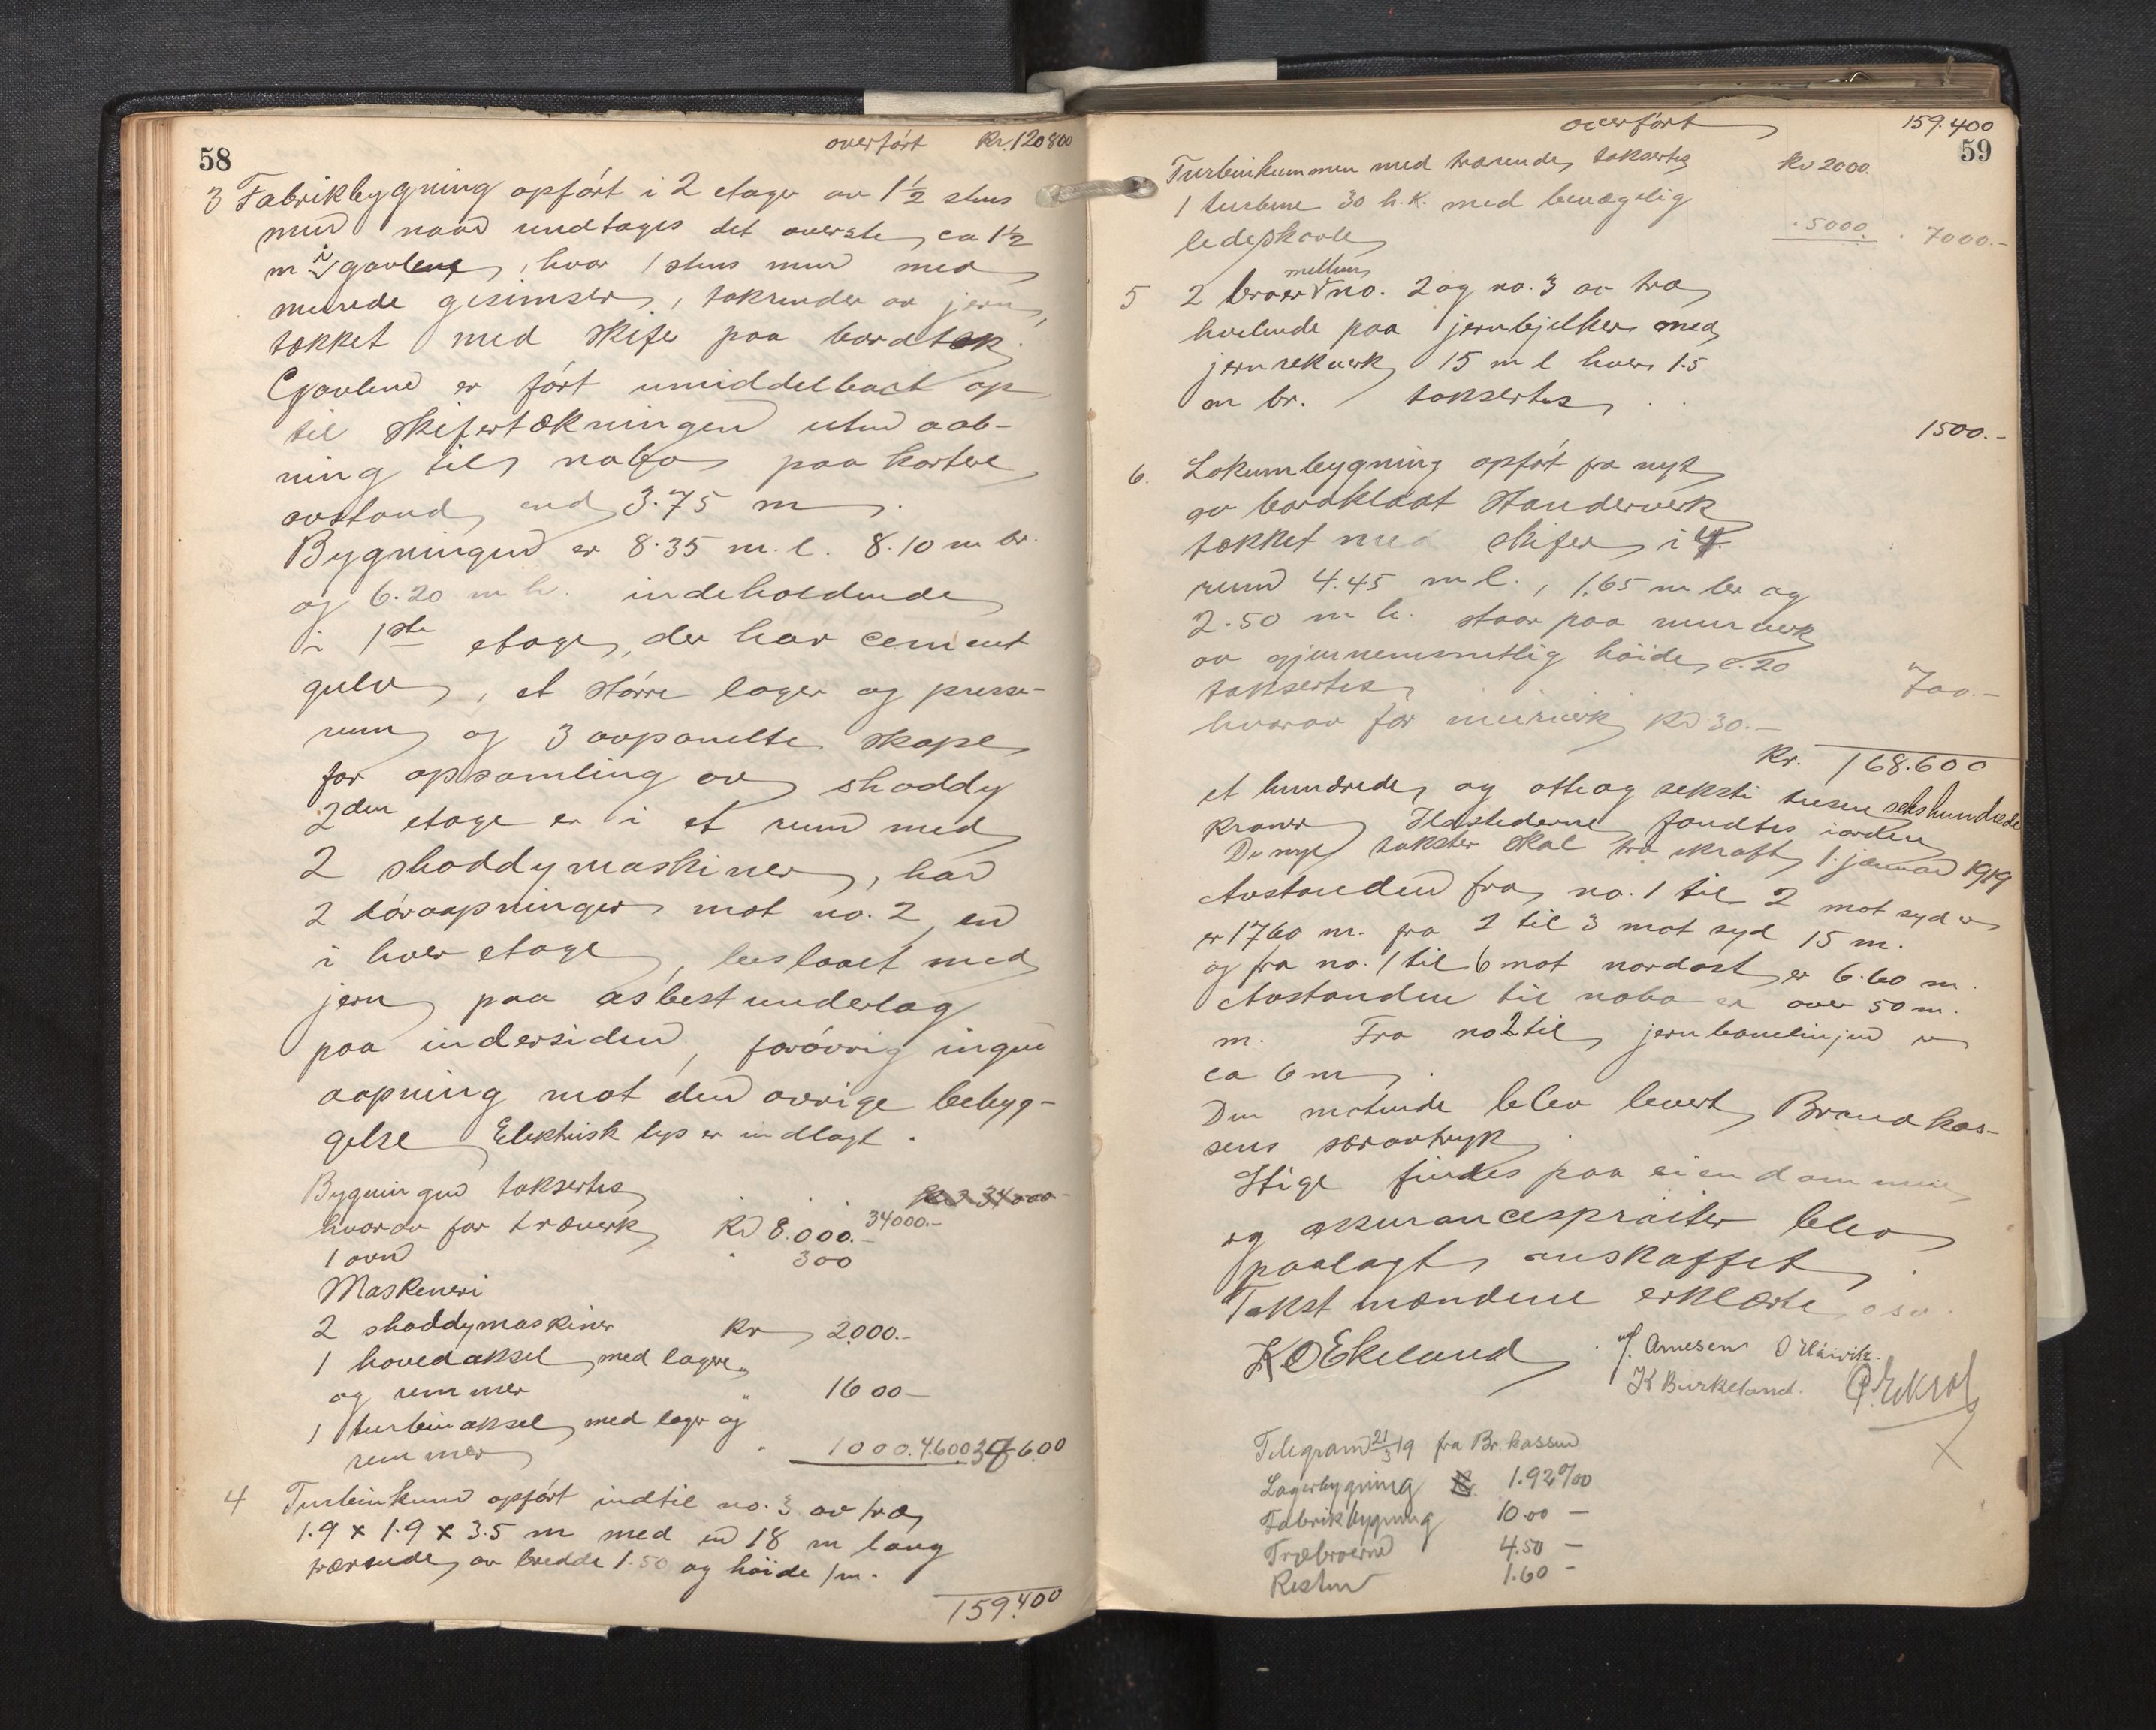 58
overført Kr. 120800
3 Fabrikbygning opført i 2 etager av 1½ stens
mur naar undtages det øverste ca 1½
m i gavlene, hvor 1 stens mur med
murede gesimser, takrender av jern,
tækket med skifer paa bordtak.
Gavlene er ført umiddelbart op
til skifertækningen uten aab-
ning til nabo paa kortere
avstand end 3.75 m.
Bygningen er 8.35 m. l. 8.10 m br.
og 6.20 m h. indeholdende
i 1ste etage, der har cement
gulv, et større lager og presse-
rum og 3 avpanelte skape
for opsamling av shoddy
2den etage er i et rum med
2 shoddymaskiner, har
2 døraapninger mot no. 2, en
i hver etage, beslaaet med
jern paa asbestunderlag
paa indersiden, forøvrig ingen
aapning mot den øvrige bebyg-
gelse Elektrisk lys er indlagt.
Bygningen taksertes Kr 34000-
hvorav for træverk Kr 8.000.- 34000.-
1 ovn " 300
Maskeneri
2 shoddymaskiner Kr 2000.-
1 hovedaksel med lagere
og remmer " 1600-
1 turbinaksel med lager og
remmer " 1000. 4.600 38600
4 Turbinkum opført indtil no. 3 av træ
1.9 x 1.9 x 3.5 m med en 18 m lang
trærende av bredde 1.50 og høide 1 m.
159.400
overført 159.400
59
Turbinkummen med trærende taksertes Kr 2000.
1 turbine 30 h.k. med bevægelig
ledeskovle " 5000. " 7000.-
5 2 broer mellem no. 2 og no. 3 av træ
hvilende paa jernbjelker med
jernrekverk 15 m l hver 1.5
m br. taksertes
1500.-
6. Lokumbygning opført fra nyt
av bordklædt standerverk
tækket med skifer i 4
rum 4.45 m l., 1.65 m br og
2.50 m h. staar paa murverk
av gjennemsnitlig høide 0.20
taksertes 700.-
hvorav for murverk Kr 30.-
Kr. 168.600
et hundrede og otteogseksti tusen sekshundrede
kroner Ildstederne fandtes i orden
De nye takster skal træ i kraft 1. januar 1919
Avstanden fra no. 1 til 2 mot syd er
er 1760 m. fra 2 til 3 mot syd 15 m.
og fra no. 1 til 6 mot nordøst er 6.60 m.
Avstanden til nabo er over 50 m.
m. Fra no 2 til jernbanelinjen er
ca 6 m.
Den møtende blev levert Brandkas-
sens særavtryk.
Stige findes paa eiendommen
og assurancesprøiter blev
paalagt anskaffet.
Takstmændene erklærte osv.
K O Ekeland J. Arnesen O Håvik.
K Birkeland.
Telegram 21/3 19 fra Br. kassen
Lagerbygning 1.92 ‰
Fabrikbygning 10.00 -
Træbroerne 4.50 -
Resten 1.60 -